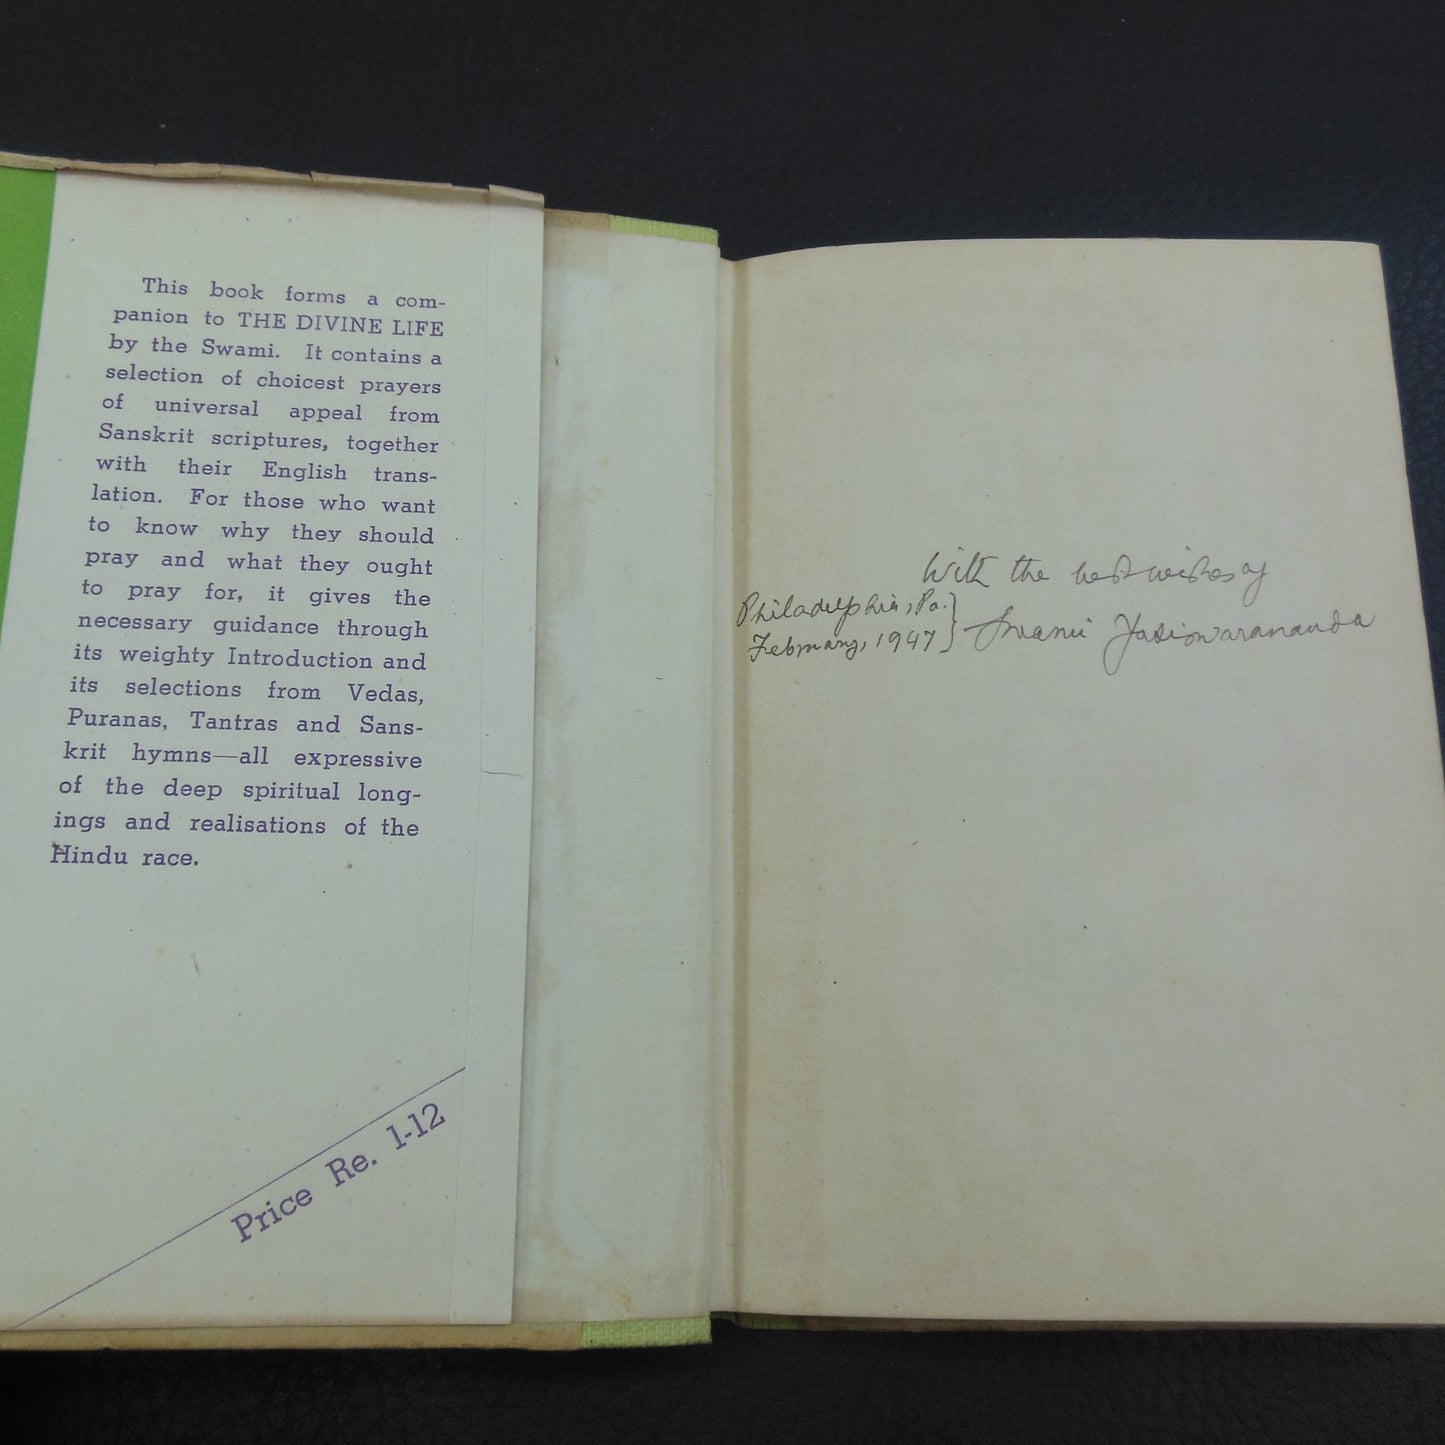 This book forms a com-
panion to THE DIVINE LIFE
by the Swami. It contains a
selection of choicest prayers
of universal appeal from
Sanskrit scriptures, together
with their English trans-
lation. For those who want
to know why they should
pray and what they ought
to pray for, it gives the
necessary guidance through
its weighty Introduction and
its selections from Vedas,
Puranas, Tantras and Sans-
krit hymns—all expressive
of the deep spiritual long-
ings and realisations of the
Hindu race.
Price Re. 1-12
With the best wishes of
Philadelphia, Pa.
February, 1947
Swami Yatiswarananda